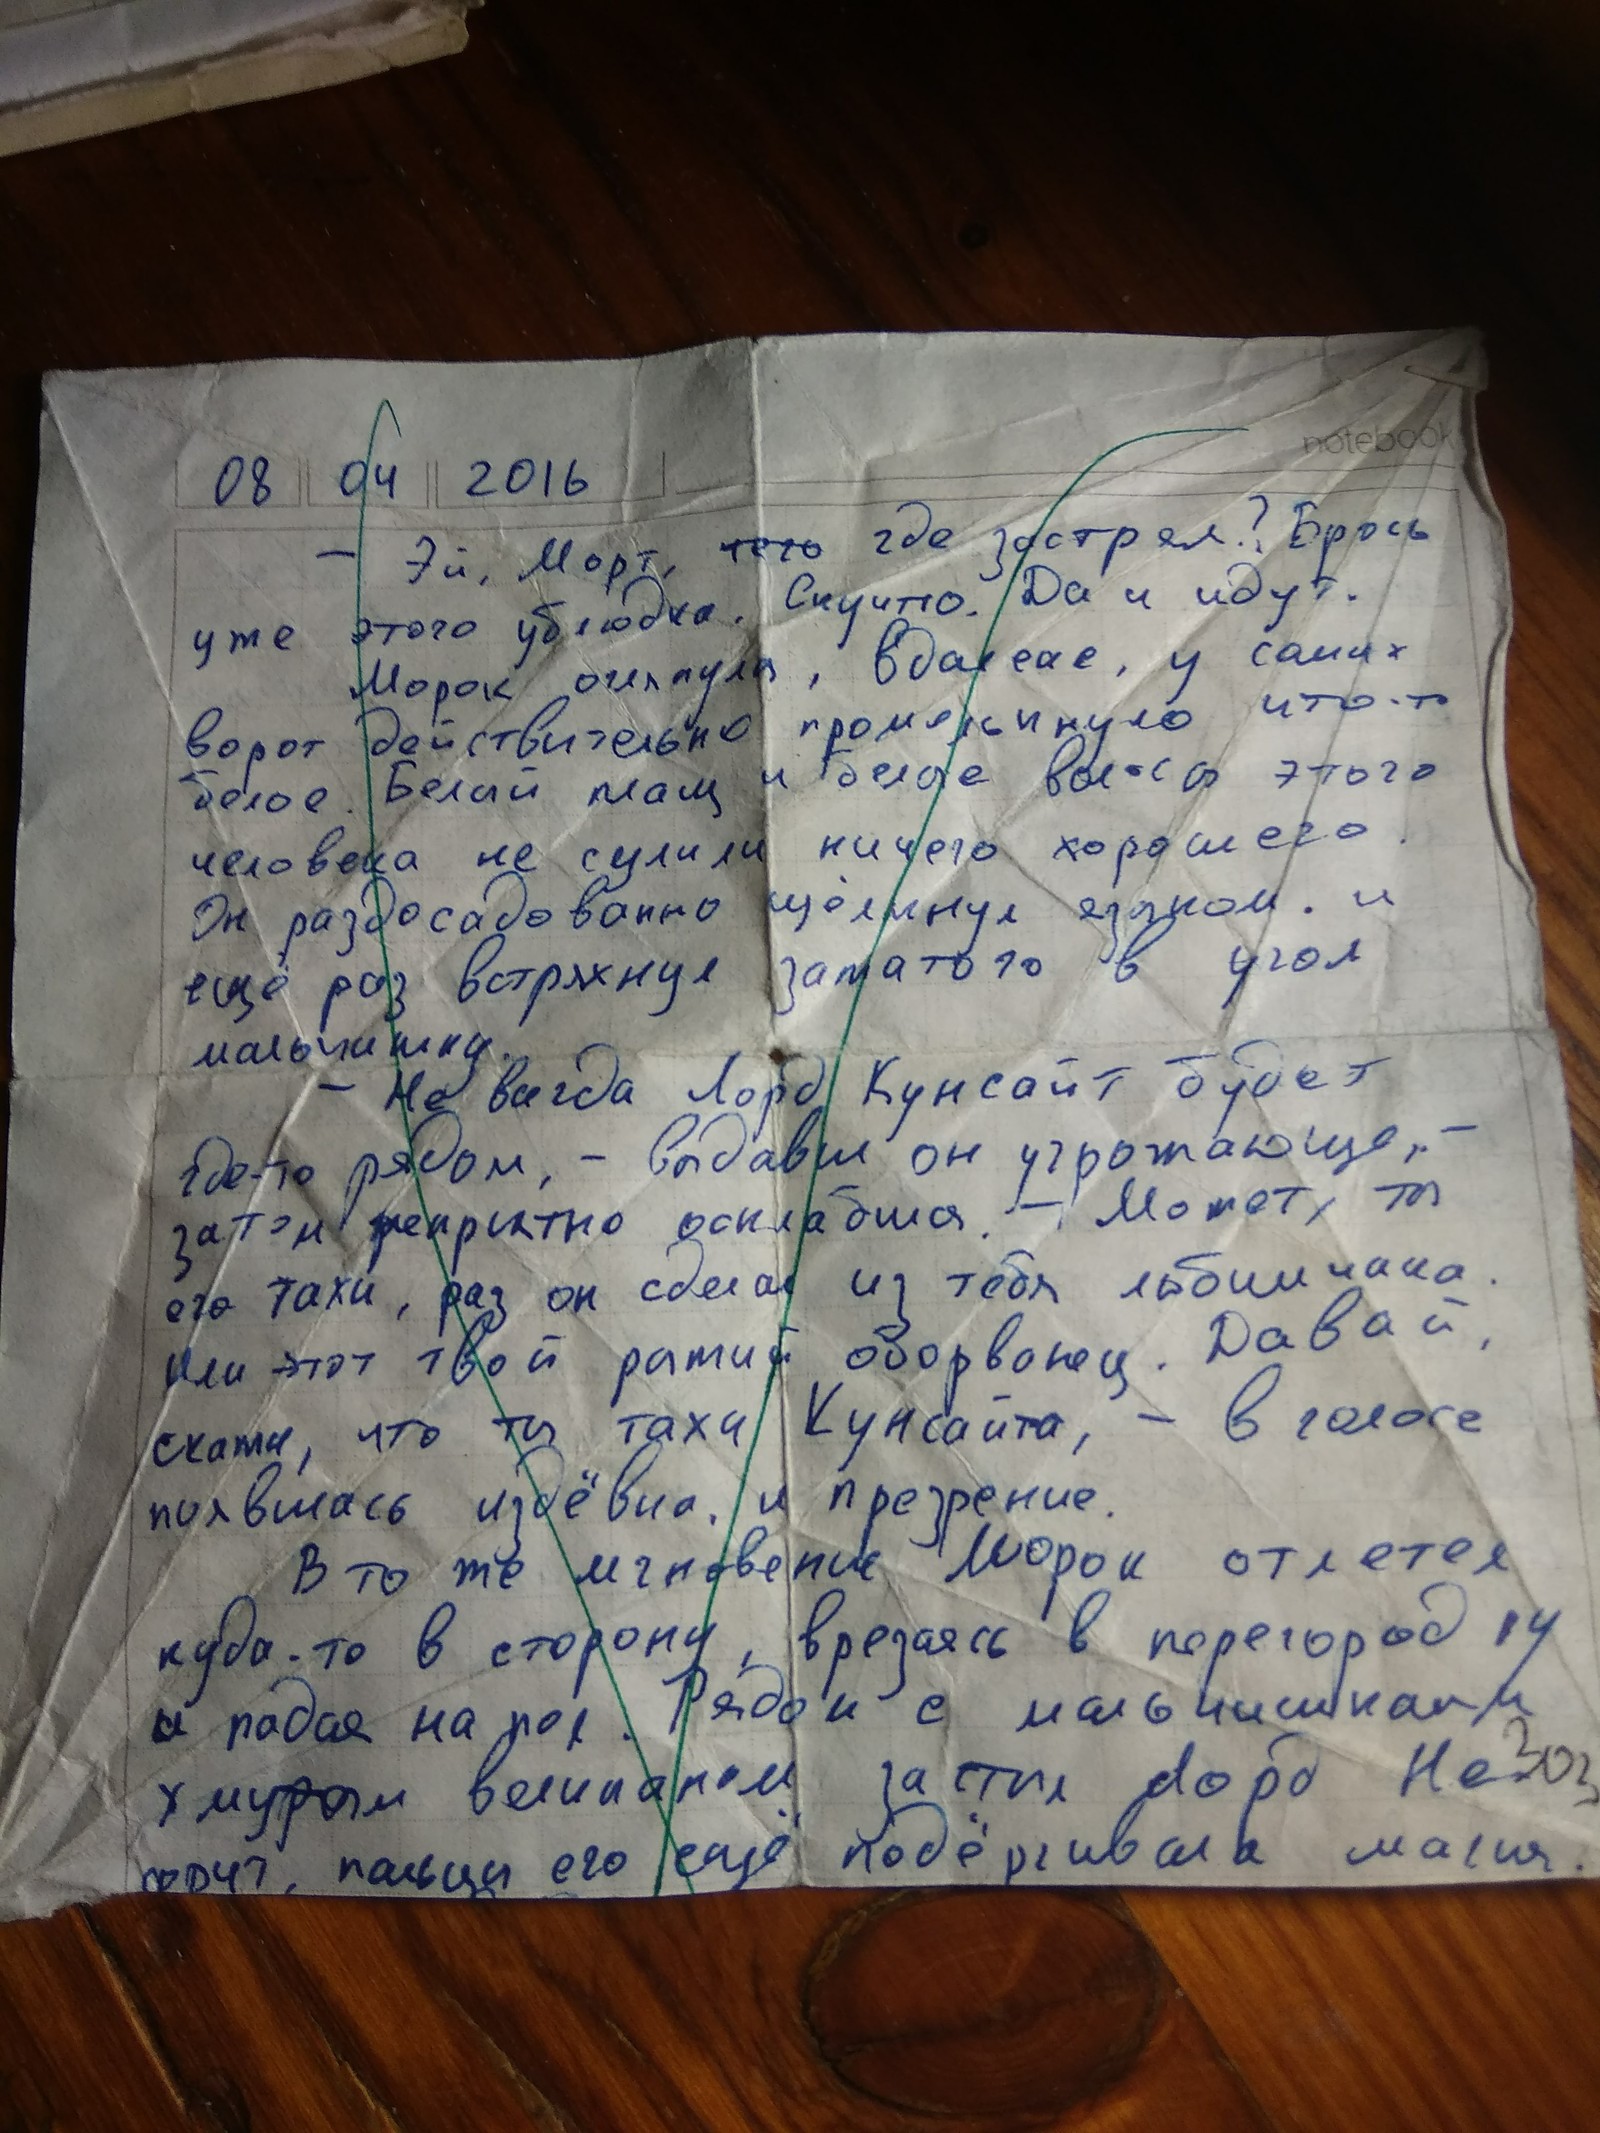 notebook
08 04 2016
— Эй, Морт, чего где застрял? Брось
уже этого ублюдка. Скучно. Да и идут.
Морок оглянулся, вдалеке, у самых
ворот действительно промелькнуло что-то
белое. Белый плащ и белые волосы этого
человека не сулили ничего хорошего.
Он раздосадованно щёлкнул языком. и
ещё раз встряхнул зажатого в угол
мальчишку.
— Не всегда Лорд Кунсайт будет
где-то рядом, – выдавил он угрожающе, –
затем неприятно осклабился. – Может, ты
его тахи, раз он сделал из тебя любимчика.
Или этот твой рыжий оборванец. Давай,
скажи, что ты тахи Кунсайта, – в голосе
появилась издёвка. и презрение.
В то же мгновение Морок отлетел
куда-то в сторону, врезаясь в перегородку
и падая на пол. Рядом с мальчишками
хмурым великаном застыл Лорд Неф
пальцы его ещё подёргивала магия.